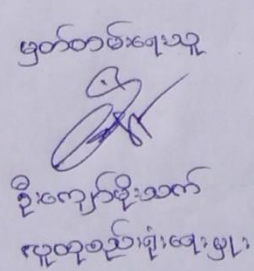 မှတ်တမ်းရေးသူ
ဦးကျော်မိုးသက်
လူထုစည်းရုံးရေးမှူး